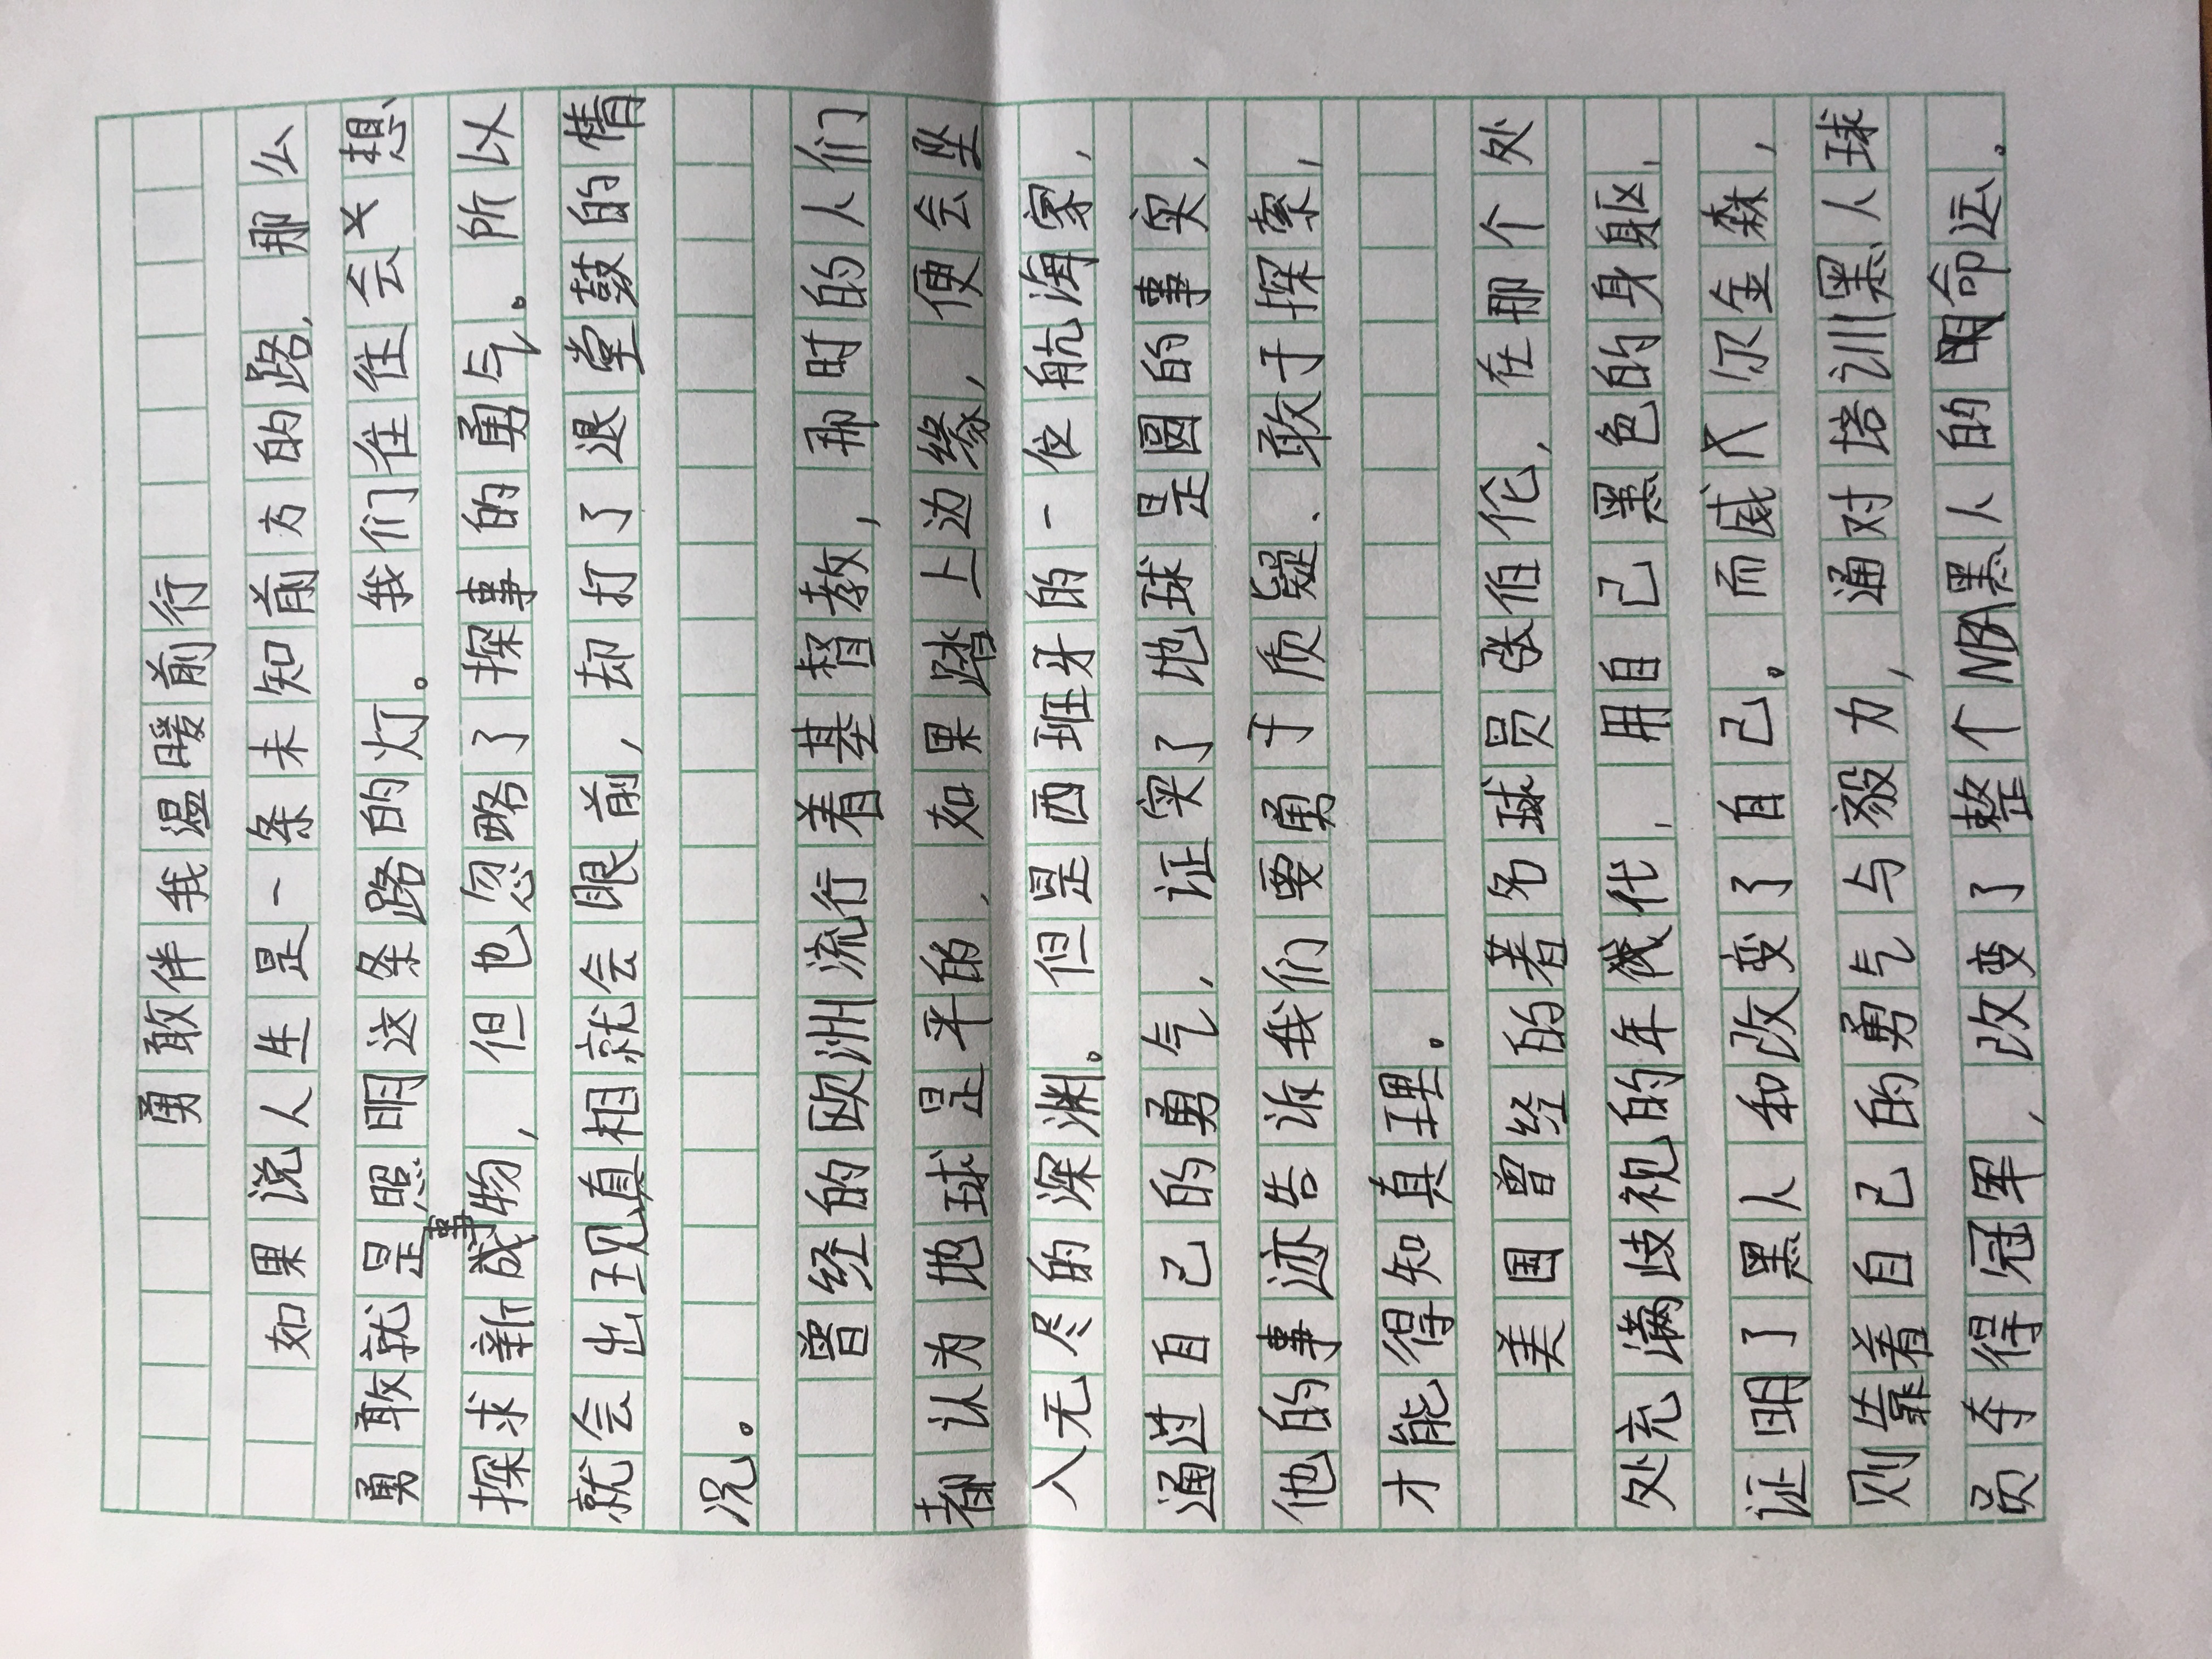 勇敢伴我温暖前行
如果说人生是一条未知前方的路,那么
勇敢就是照明这条路的灯。我们往往会关想、
探求新事物,但也忽略了探事的勇气。所以
就会出现真相就会眼前,却打了退堂鼓的情
况。
曾经的欧洲流行着基督教,那时的人们
都认为地球是平的,如果踏上边缘,便会坠
入无尽的深渊。但是西班牙的一位航海家,
通过自己的勇气,证实了地球是圆的事实,
他的事迹告诉我们要勇于质疑、敢于探索,
才能得知真理。
美国曾经的著名球员张伯伦,在那个处
处充满歧视的年代,用自己黑色的身躯,
证明了黑人和改变了自己。而威尔金森,
则靠着自己的勇气与毅力,通对培训黑人球
员夺得冠军,改变了整个NBA黑人的命运。